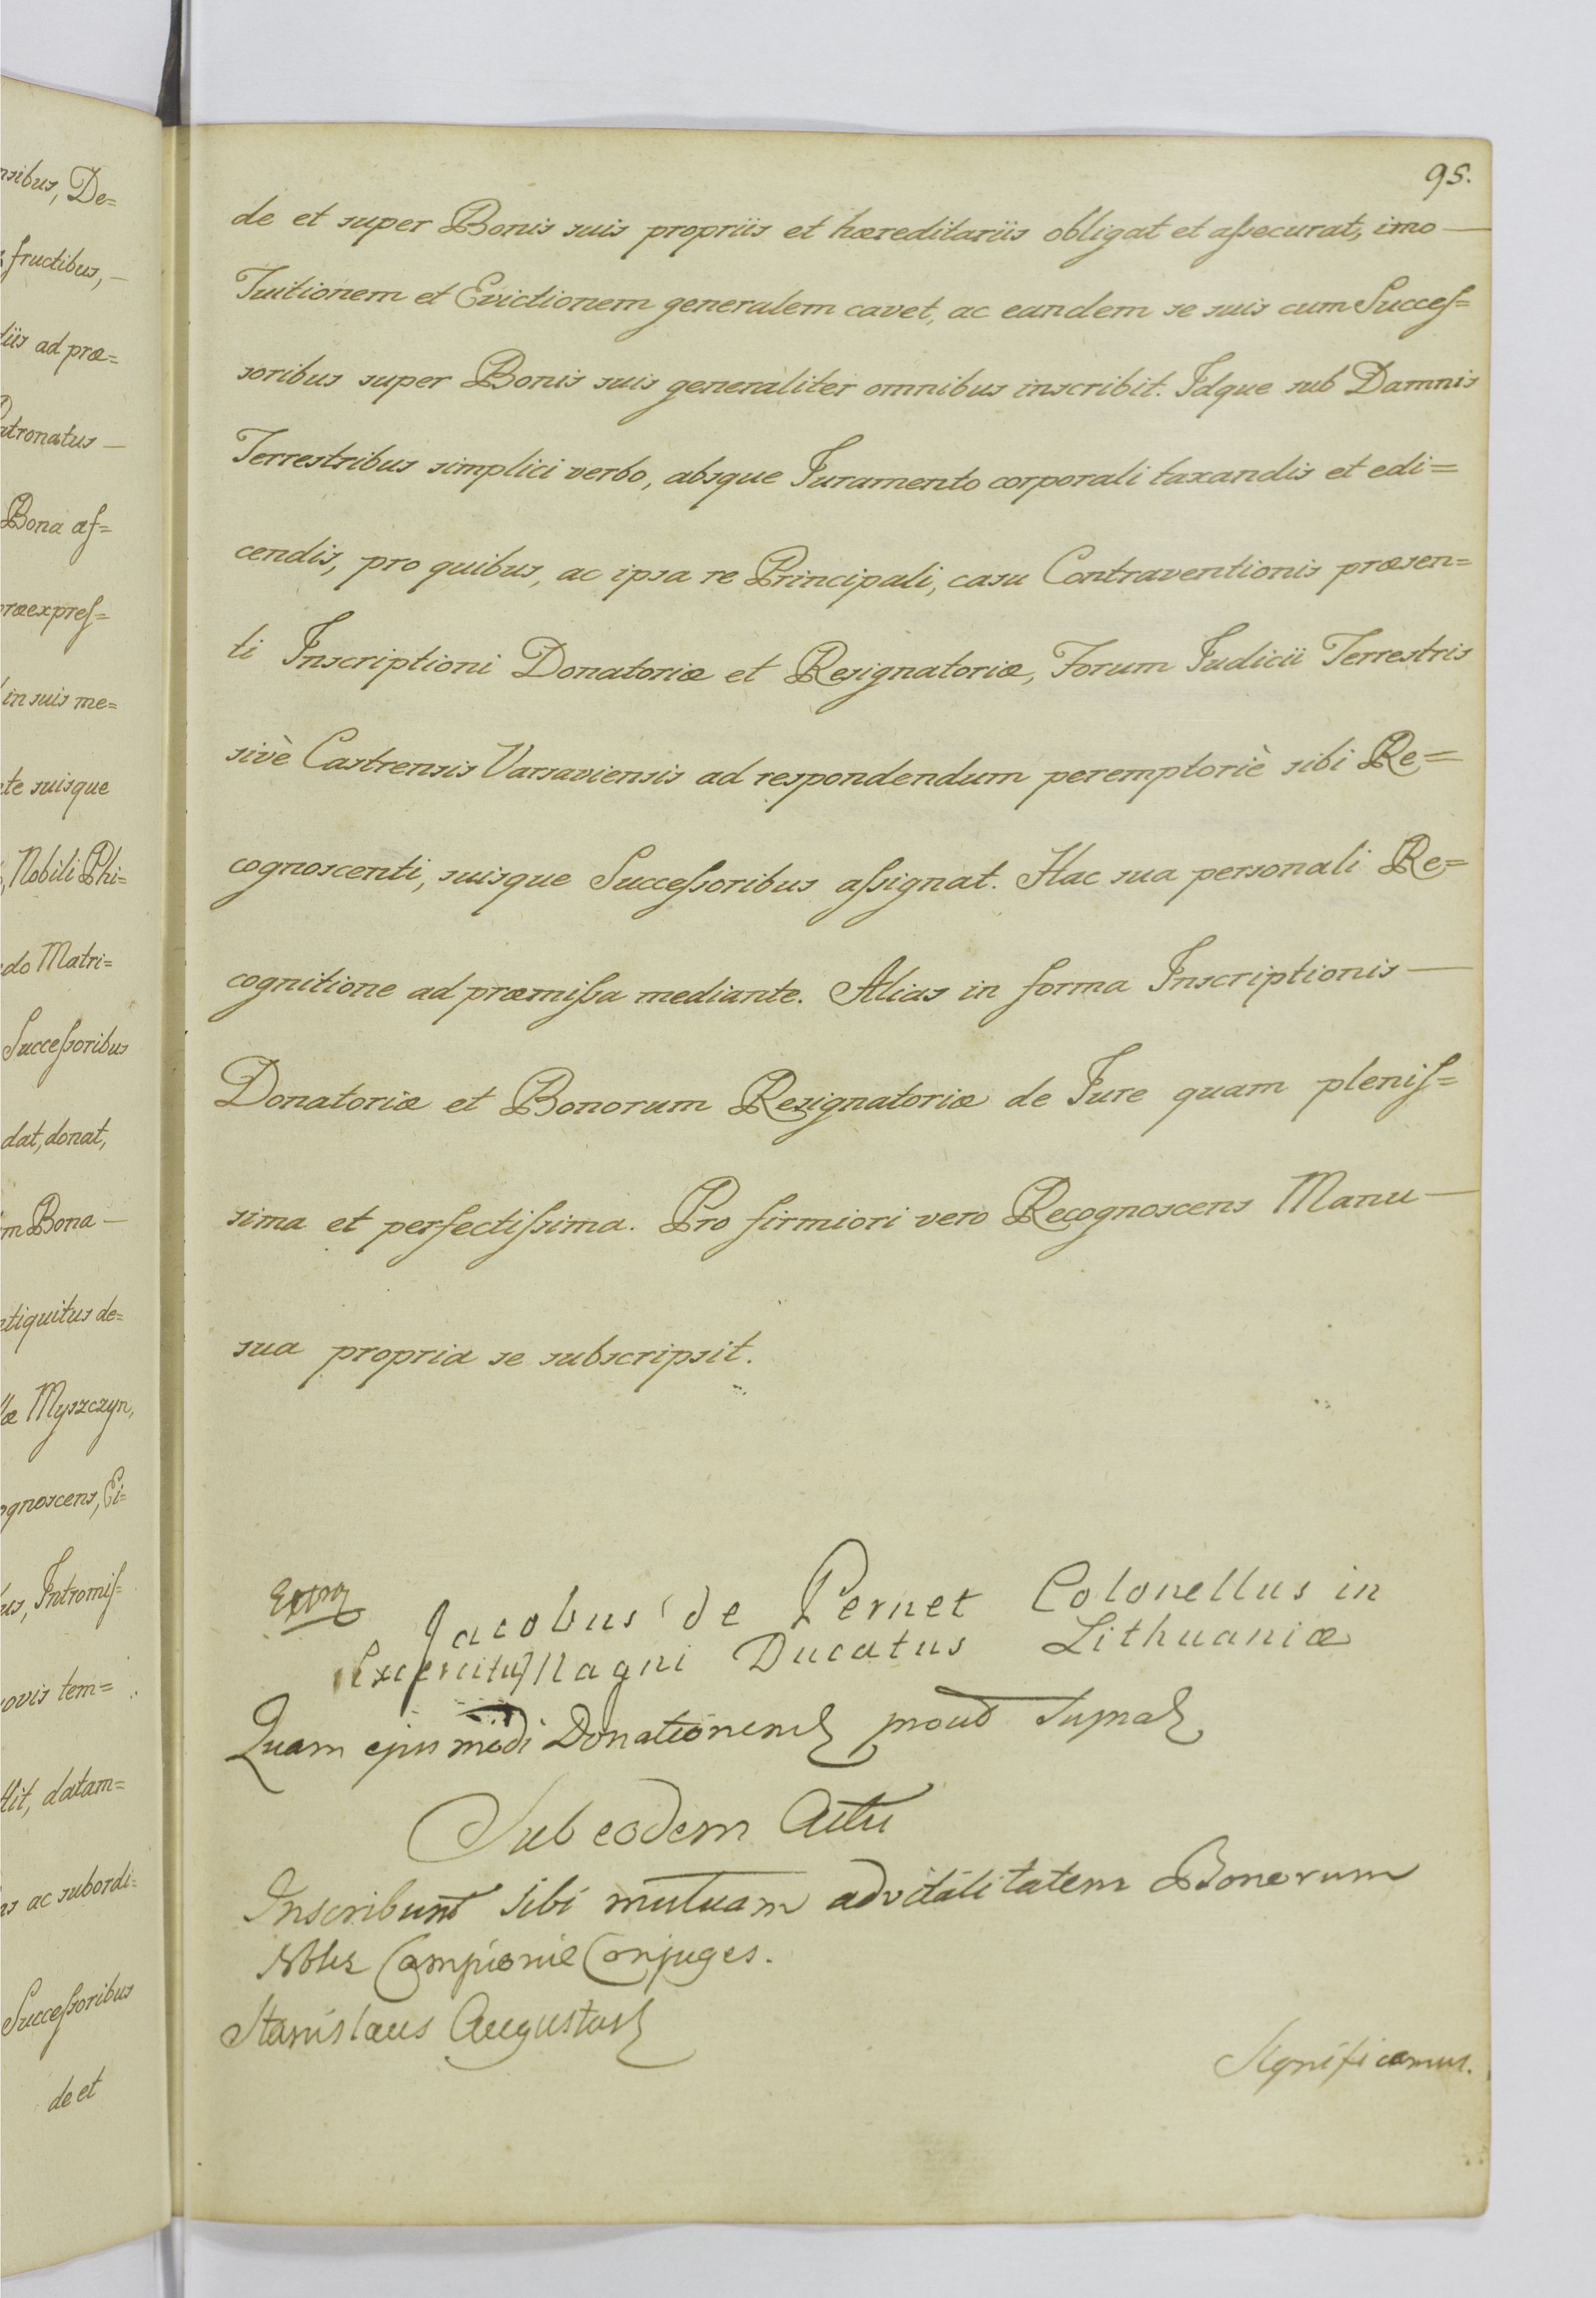 nsibus, De=
fructibus, —
diis ad præ=
Patronatus —
Bona as=
præexpres=
in suis me=
te suisque
Nobili Phi=
do Matri=
Successoribus
dat, donat,
m Bona —
ntiquitus de=
læ Myszczyn,
ognoscens, Ei=
us, Intromis=
ovis tem=
ttit, datam=
ns ac subordi=
Successoribus
de et
95.
de et super Bonis suis propriis et hæreditariis obligat et assecurat, imo —
Tuitionem et Evictionem generalem cavet, ac eandem se suis cum Succes=
soribus super Bonis suis generaliter omnibus inscribit. Idque sub Damnis
Terrestribus simplici verbo, absque Juramento corporali taxandis et edi=
cendis, pro quibus, ac ipsa re Principali, casu Contraventionis præsen=
ti Inscriptioni Donatoriæ et Resignatoriæ, Forum Judicii Terrestris
sivè Castrensis Varsaviensis ad respondendum peremptoriè sibi Re=
cognoscenti, suisque Successoribus assignat. Hac sua personali Re=
cognitione ad præmissa mediante. Alias in forma Inscriptionis —
Donatoriæ et Bonorum Resignatoriæ de Jure quam plenis=
sima et perfectissima. Pro firmiori vero Recognoscens Manu —
sua propria se subscripsit.
Jacobus de Pernet Colonellus in
Exercitu Magni Ducatus Lithuaniæ
Quam ejusmodi Donationem prout supra
Sub eodem Actu
Inscribunt sibi mutuam advitalitatem Bonorum
Nobles Campioni Conjuges.
Stanislaus Augustus
Significamus.